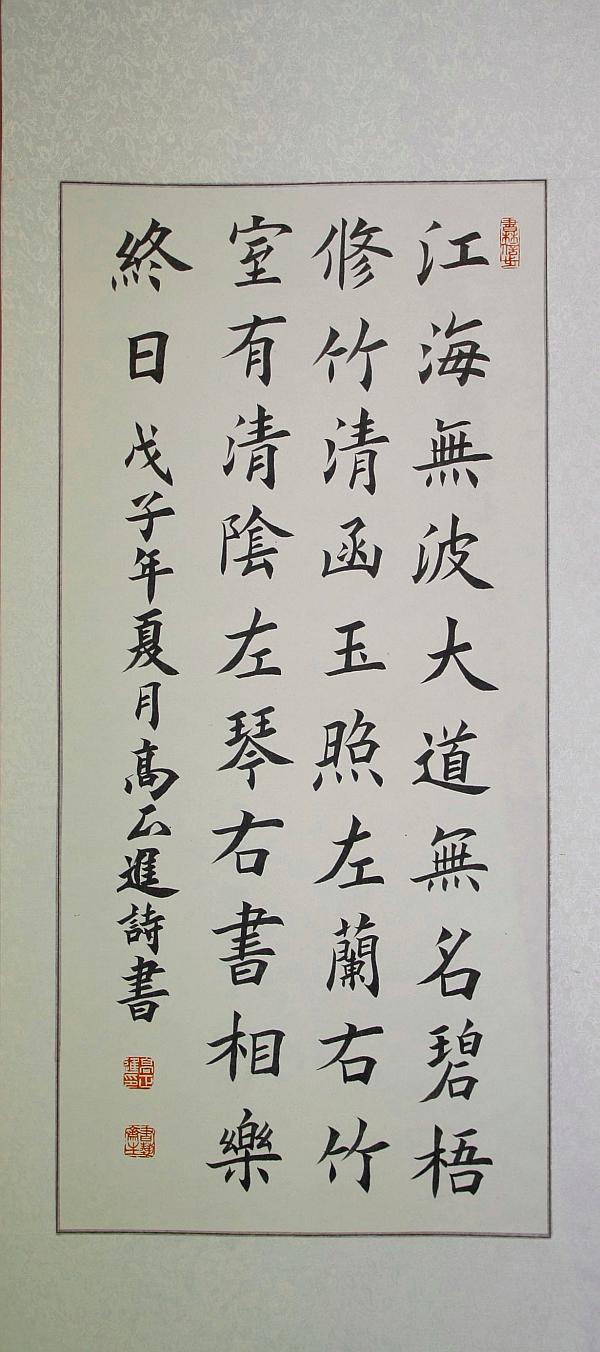 江海無波大道無名碧梧
修竹清函玉照左蘭右竹
室有清陰左琴右書相樂
終日戊子年夏月高正進詩書